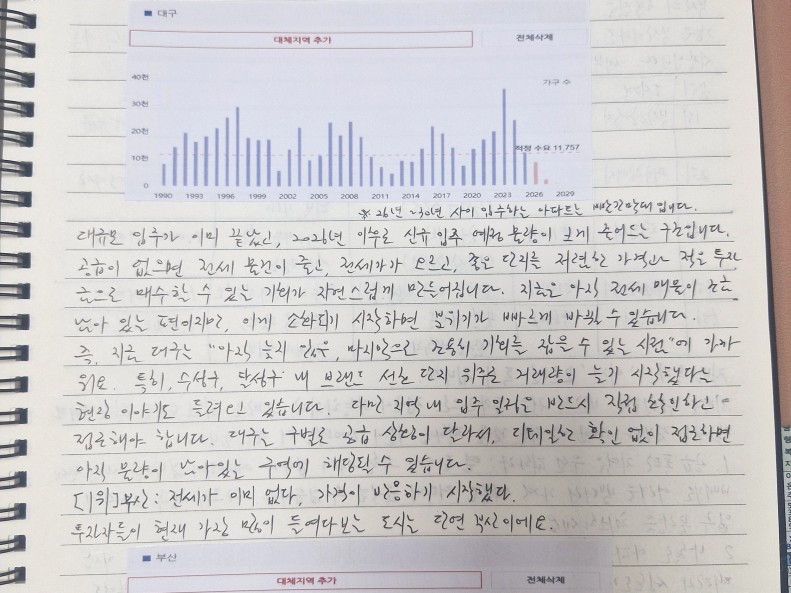 ■ 대구
대체지역 추가 전체삭제
가구 수
40천
30천
20천
적정 수요 11,757
10천
0
1990 1993 1996 1999 2002 2005 2008 2011 2014 2017 2020 2023 2026 2029
※ 26년 ~30년 사이 입주하는 아파트는 빨간막대 입니다.
대규모 입주가 이미 끝났고, 2026년 이후로 신규 입주 예정 물량이 크게 줄어드는 구간입니다.
공급이 없으면 전세 물건이 줄고, 전세가가 오르고, 좋은 단지를 저렴한 가격과 적은 투자
금으로 매수할 수 있는 기회가 자연스럽게 만들어집니다. 지금은 아직 전세 매물이 조금
남아 있는 편이지만, 이게 소화되기 시작하면 분위기가 빠르게 바뀔 수 있습니다.
즉, 지금 대구는 "아직 늦지 않은, 마지막으로 조용히 기회를 잡을 수 있는 시점"에 가까
워요. 특히, 수성구, 달성구 내 브랜드 선호 단지 위주로 거래량이 늘기 시작했다는
현장 이야기도 들려오고 있습니다. 다만 지역 내 입주 일정은 반드시 직접 확인하고
접근해야 합니다. 대구는 구별로 공급 상황이 달라서, 디테일한 확인 없이 접근하면
아직 물량이 남아있는 구역에 해당될 수 있습니다.
[1위] 부산 : 전세가 이미 없다, 가격이 반응하기 시작했다.
투자자들이 현재 가장 많이 들여다보는 도시는 단연 부산이에요.
■ 부산
대체지역 추가 전체삭제